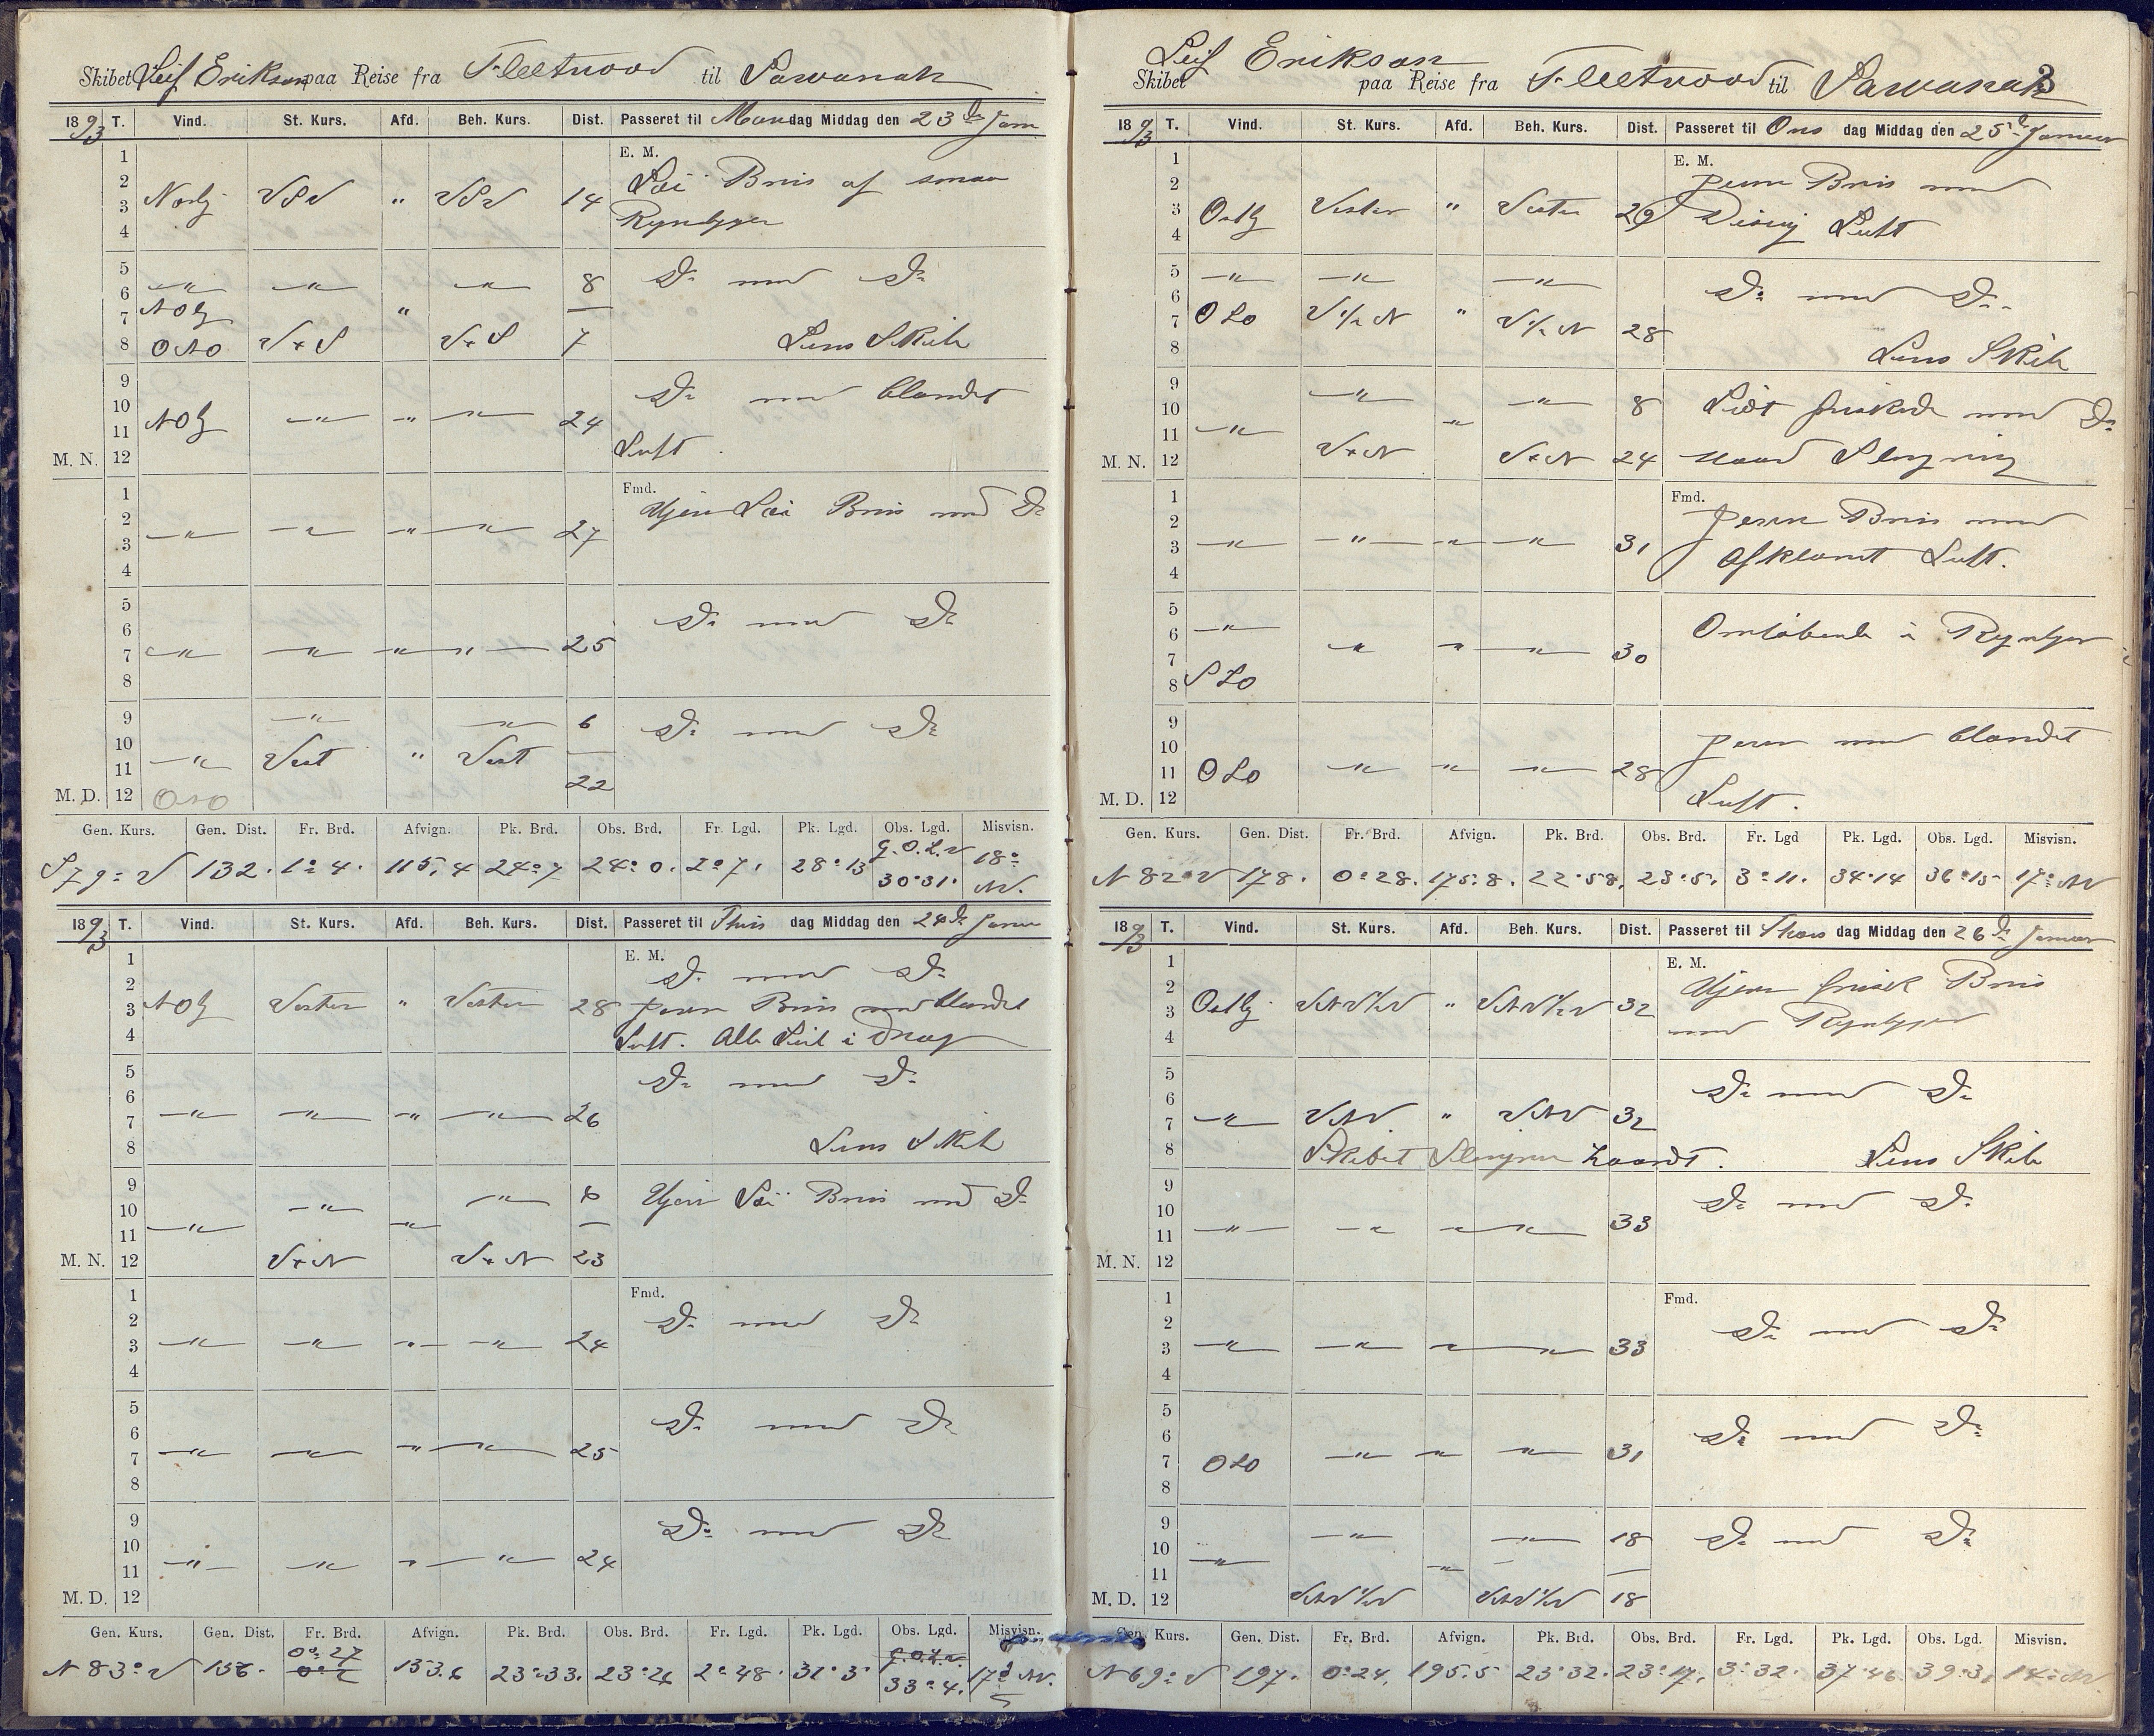 Skibet Leif Erikson paa Reise fra Fleetwood til Sawanah
1893 T. Vind. St. Kurs. Afd. Beh. Kurs. Dist. Passeret til Mandag Middag den 23de Jan
1 E. M.
2 Löi Bris af smaa
3 Nordlig VSV " VSV 14
4 Rynbyger
5
6 —"— —"— —"— 8 Do med Do
7 NOlg "
8 ONO V+S V+S 7 Lens Skib
9
10 Do med blandet
11 NOlg —"— —"— —"— 24
M. N. 12 Luft.
1 Fmd.
2 Ujevn Löi Bris med Do
3 —"— —"— —"— —"— 27
4
5
6 Do med Do
7 —"— —"— —"— —"— 25
8
9 —"— —"— 6 Do med Do
10
11 —"— Vest " Vest 22
M. D. 12 ONO
Gen. Kurs. Gen. Dist. Fr. Brd. Afvign. Pk. Brd. Obs. Brd. Fr. Lgd. Pk. Lgd. Obs. Lgd. Misvisn.
G.O.L.V
S79°V 132. 1°4. 115,4 24°7 24°0. 2°7. 28°13 30°31. 18° NV.
1893 T. Vind. St. Kurs. Afd. Beh. Kurs. Dist. Passeret til Thirs dag Middag den 24de Janu
1 E. M. Do med Do
2
3 NOlg Vesten " Vesten 28 Jevn Bris med blandet
4 Luft. Alle Seil i Drag
5 Do med Do
6
7 —"— —"— —"— —"— 26
8 Lens Skib
9 Ujevn Löi Bris med Do
10 —"— —"— 6
11 —"— —"—
M. N. 12 V+N V+N 23
1 Fmd.
2 Do med Do
3 —"— —"— —"— —"— 24
4
5 Do med Do
6
7 —"— —"— —"— —"— 25
8
9 Do med Do
10
11 —"— —"— —"— —"— 24
M. D. 12
Gen. Kurs. Gen. Dist. Fr. Brd. Afvign. Pk. Brd. Obs. Brd. Fr. Lgd. Pk. Lgd. Obs. Lgd. Misvisn.
0°.27 G.O.L.V.
N83°V 153.6 23°33. 2°48. 31°3 33°4. 17° NV.
Leif Erikson
Skibet paa Reise fra Fleetwood til Sawanah
3
1893 T. Vind. St. Kurs. Afd. Beh. Kurs. Dist. Passeret til Ons dag Middag den 25de Januar
1 E. M.
2 Jevn Bris med
3 Ostlg Vesten " Vesten 29 Disig Luft
4
5 —"— —"— —"—
6 Do med Do
7 OSO V½N " V½N 28
8 Lens Skib
9
10 —"— —"— 8 Lidt friskede med Do
11 —"— —"—
M. N. 12 V+N V+N 24 Haard Slengning
1 Fmd.
2 Jevn Bris med
3 —"— —"— —"— —"— 31 Afklaret Luft.
4
5
6 —"— Omlöbende i Rynbyer
7 —"— —"— —"— 30
8 SSO
9
10 Jevn med blandet
11 OSO —"— —"— —"— 28
M. D. 12 Luft.
Gen. Kurs. Gen. Dist. Fr. Brd. Afvign. Pk. Brd. Obs. Brd. Fr. Lgd Pk. Lgd. Obs. Lgd. Misvisn.
N82°V 178. 0°28. 175.8. 22°58. 23°5. 3°11. 34°14 36°15 17° NV
1893 T. Vind. St. Kurs. Afd. Beh. Kurs. Dist. Passeret til Thors dag Middag den 26de Januar
1 E. M.
2 Ujevn frisk Bris
3 Ostlg VNV½V " VNV½V 32 med Rynbyger
4
5
6 Do med Do
7 —"— VNV " VNV 32
8 Skibet Slenger haardt. Lens Skib
9
10 Do med Do
11 —"— —"— —"— —"— 33
M. N. 12
1 Fmd.
2 Do med Do
3 —"— —"— —"— —"— 33
4
5
6 Do med Do
7 OSO —"— —"— —"— 31
8
9 —"— —"— 18 Do med Do
10
11 —"— —"—
M. D. 12 VNV½V VNV½V 18
Gen. Kurs. Gen. Dist. Fr. Brd. Afvign. Pk. Brd. Obs. Brd. Fr. Lgd. Pk. Lgd. Obs. Lgd. Misvisn.
N69°V 197. 0°24. 195.5 23°32. 23°17. 3°32. 37°46 39°3 14° NV.